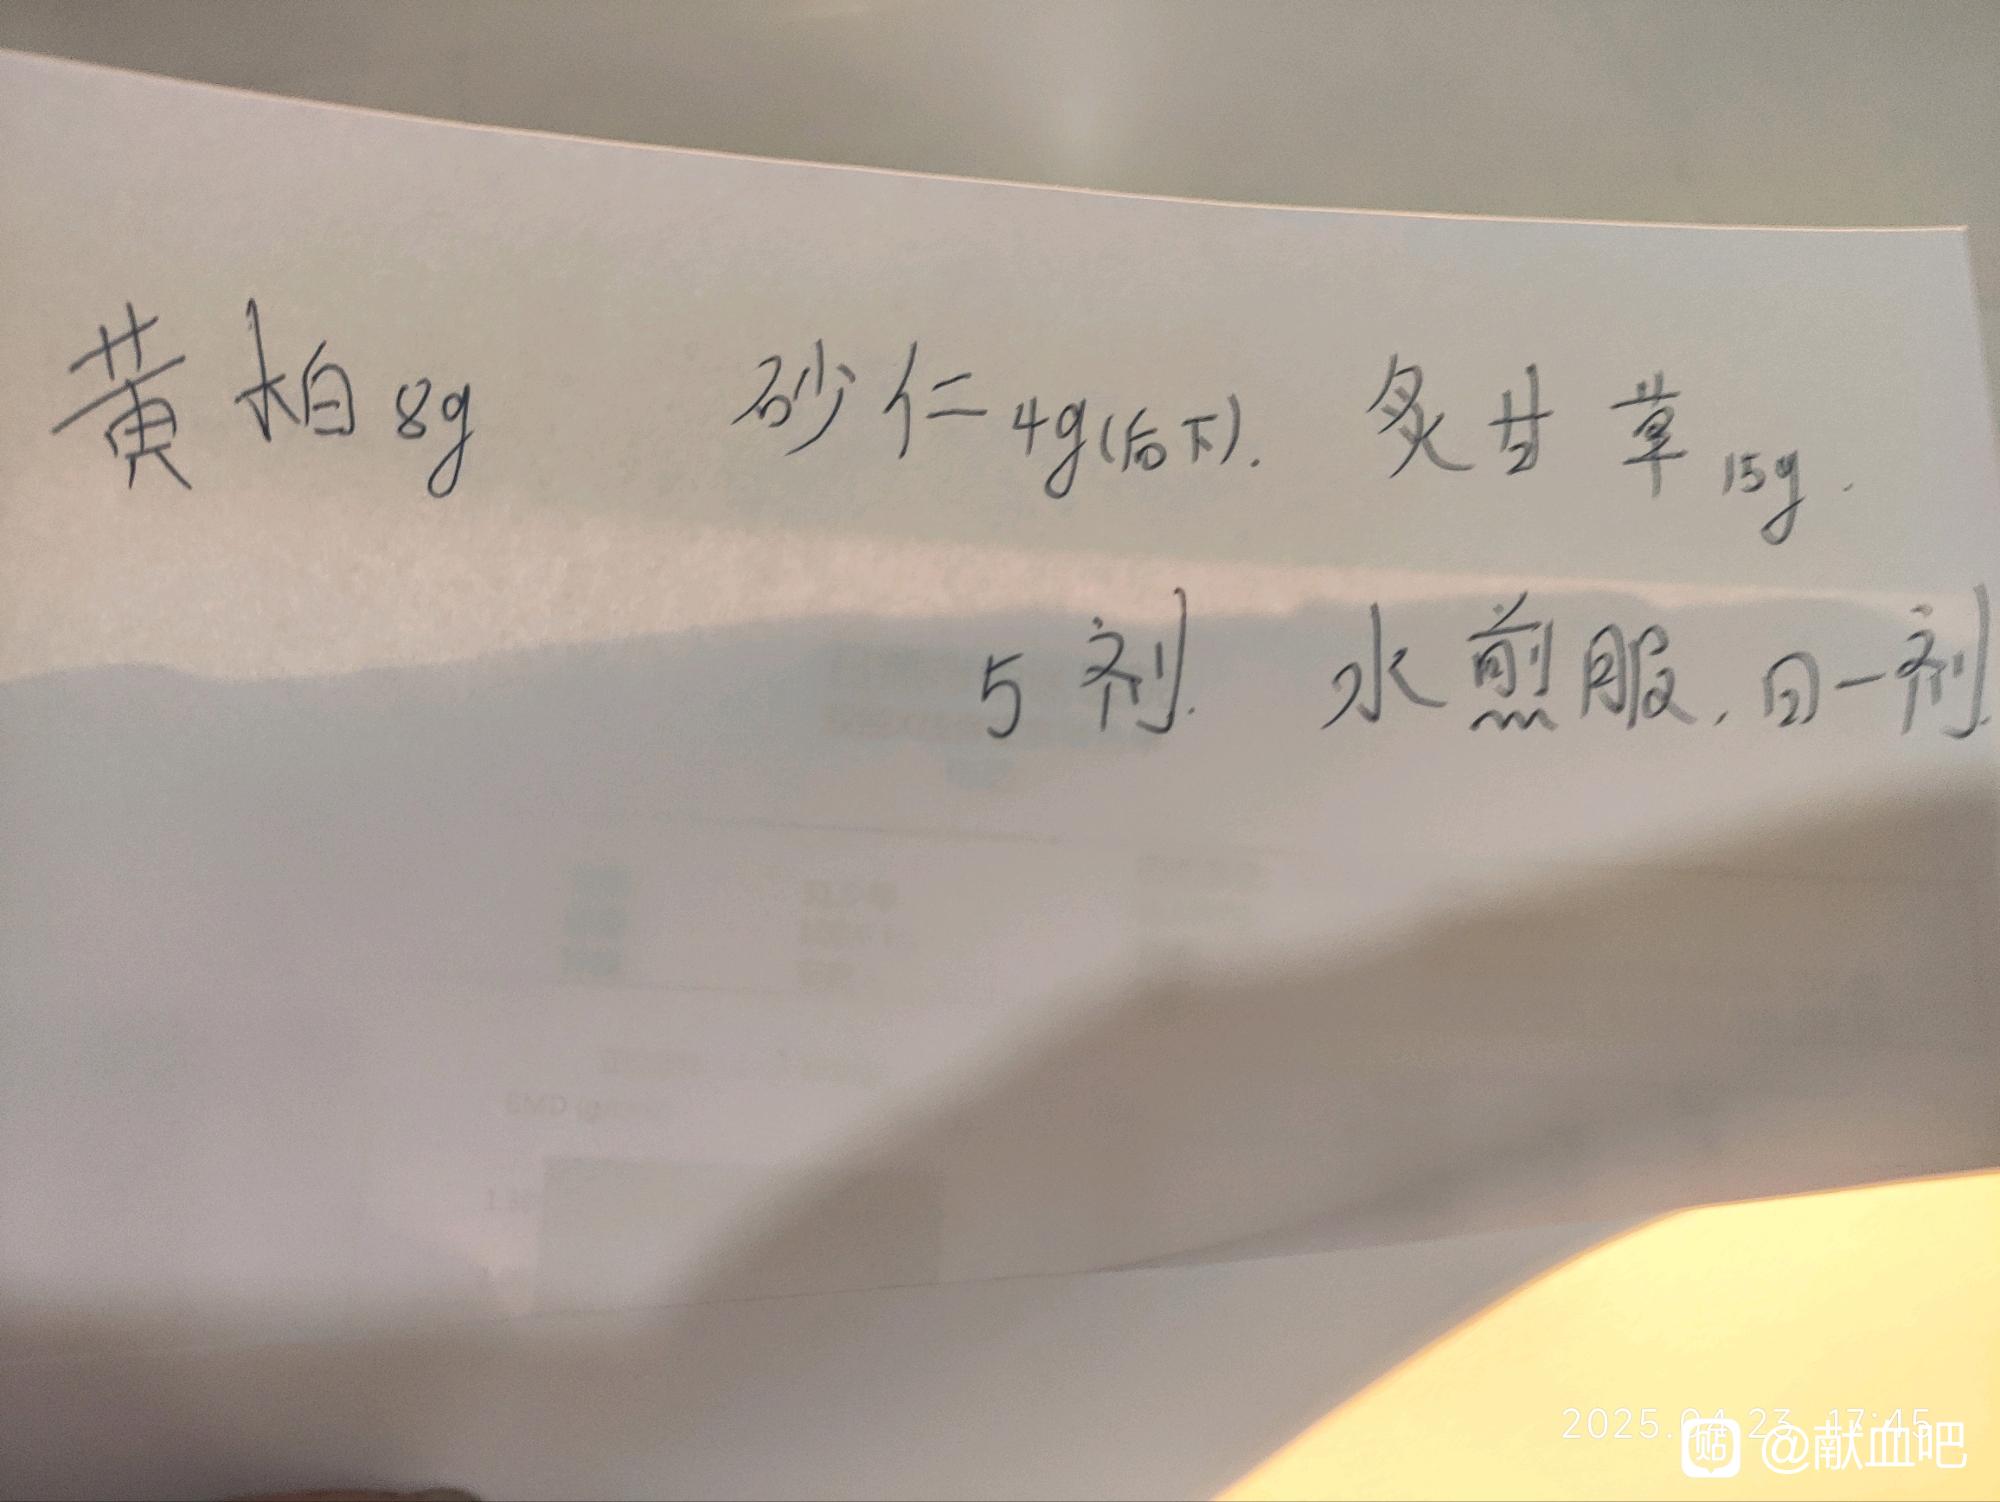 黄柏8g 砂仁4g(后下). 炙甘草15g.
5剂. 水煎服,日一剂.
BMD (g/cm
2025.04.23 17:45
贴 @献血吧